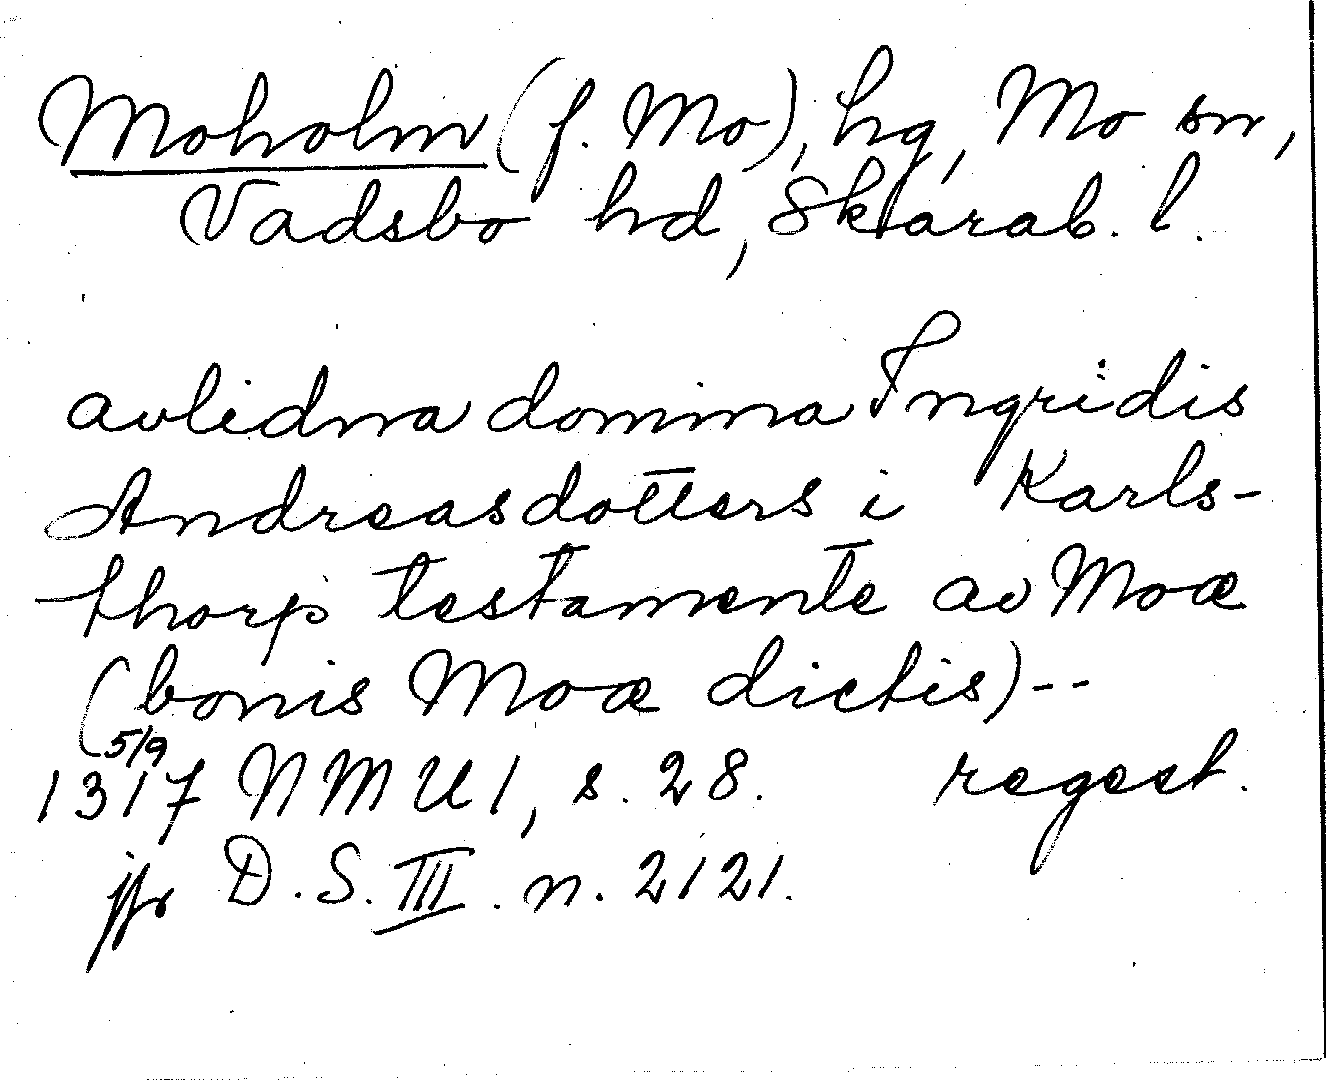 Moholm (f. Mo), hg, Mo sn,
Vadsbo hd, Skarab. l.
avlidna domina Ingridis
Andreasdotters i Karls-
thorp testamente av Moæ
(bonis Moæ dictis)--
5/9
1317 NMU 1, s. 28. regest.
jfr D.S. III. n. 2121.